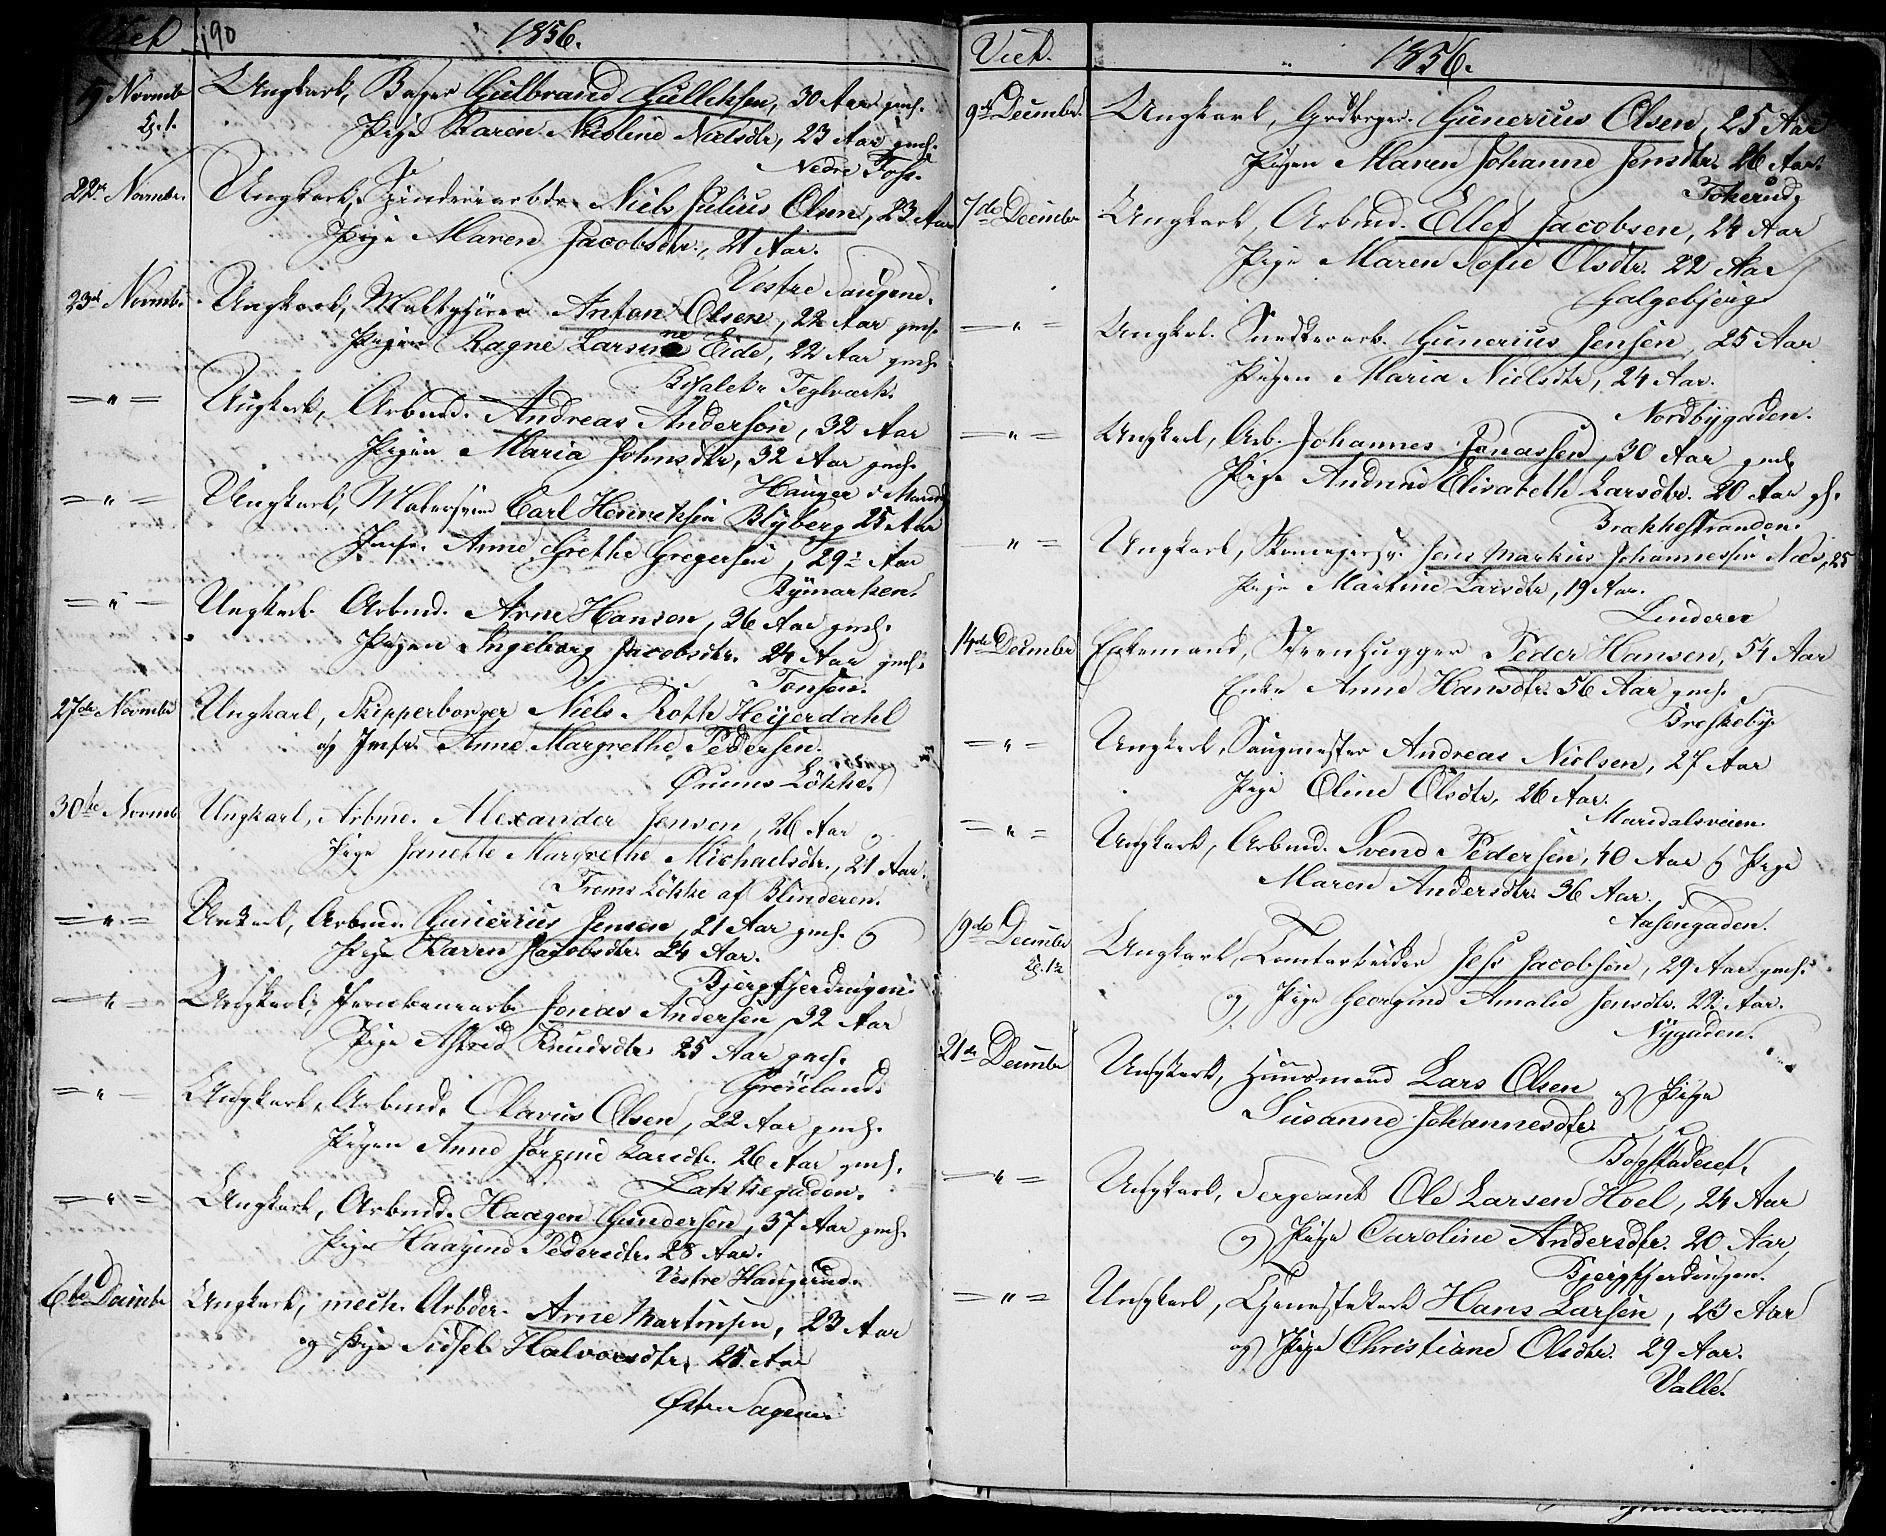 Viet 190 1856.
9 Novmbr Ungkarl, Bager Gulbrand Gullichsen, 30 Aar gmh.
Kl. 1. Pige Karen Nicoline Nielsdtr, 23 Aar gmh.
Nedre Foss.
22. Novmbr. Ungkarl, Spinderiarbdr. Niels Julius Olsen, 23 Aar
Pige Maren Jacobsdtr., 21 Aar.
Vestre Saugene.
23de Novmbr. Ungkarl, Anton Olsen, 22 Aar gmh.
Pigen Ragne Larsine Eide, 22 Aar gmh.
Teglværk.
— " — Ungkarl, Arbmd. Andreas Anderson, 32 Aar
Pigen Maria Johnsdtr, 32 Aar gmh.
Hauger i
— " — Ungkarl, Malersvend Carl Henrichsen Blyberg 25 Aar
Jmfr. Anne Grethe Gregersen, 29½ Aar
Bymarken.
— " — Ungkarl. Arbmd. Arne Hansen, 26 Aar gmh.
Pigen Ingeborg Jacobsdtr. 24 Aar gmh.
Tonsen.
27de Novmbr Ungkarl, Skipperborger Niels Roth Heyerdahl
og Jmfr. Anne Margrethe Pedersen.
Ørums Løkke.
30te Novmb Ungkarl, Arbmd. Alexander Jensen, 26 Aar
Pige Janette Margrethe Michaelsdtr., 21 Aar.
Løkke af Blinderen.
— " — Unkarl, Arbmd. Gunerius Jensen, 21 Aar gmh. og
Pige Karen Jacobsdtr. 24 Aar.
Bjergfjerdingen
— " — Ungkarl, Jernbanearb. Jonas Andersen, 32 Aar
Pige Astrid Knudsdtr. 25 Aar gmh.
Grønland.
— " — Ungkarl, Arbmd. Olavus Olsen, 22 Aar gmh.
Pigen Anne Jørgine Larsdtr. 26 Aar gmh.
Lakkegaden.
— " — Ungkarl, Arbmd. Haagen Gundersen, 37 Aar gmh.
Pige Haagine Pedersdtr. 28 Aar.
Vestre Haugerud.
6te Decmbr Ungkarl, mech. Arbder. Arne Martinsen, 23 Aar
og Pige Sidsel Halvorsdtr, 25 Aar
Østre Sagene.
Viet. 1856.
9de Decmbr. Ungkarl, Gunerius Olsen, 25 Aar
Pigen Maren Johanne Jensdtr. 26 Aar.
Tokerud,
7de Decmbr Ungkarl, Arbmd. Ellef Jacobsen, 24 Aar
Pige Maren Sofie Olsdtr. 22 Aar
Galgebjerg
— " — Ungkrl. Snedkerarb. Gunerius Jensen, 25 Aar
Pigen Maria Nielsdtr, 24 Aar.
Nordbygaden.
— " — Ungkarl, Arb. Johannes Jonassen, 30 Aar gmh
Pige Andrine Elisabeth Larsdtr. 20 Aar gh.
Brækkestranden.
— " — Ungkarl, Skomagersv. Jens Markus Johannessen Næs, 25
Pige Martine Larsdtr, 19 Aar.
Linderen
14de Decmber Enkemand, Steenhugger Peder Hansen, 54 Aar
Enke Anne Hansdtr. 56 Aar gmh.
Breskeby.
— " — Ungkarl, Saugmester Andreas Nielsen, 27 Aar
Pige Oline Olsdtr, 26 Aar.
Maridalsveien.
— " — Ungkarl, Arbmd. Svend Pedersen, 40 Aar og Pige
Maren Andersdtr. 36 Aar.
Aasengaden.
19de Decmbr Ungkarl, Tomtarbeider Jess Jacobsen, 29 Aar gmh.
Kl. 1½ og Pige Georgine Amalie Jensdtr. 22 Aar.
Nygaden.
21de Decmbr Ungkarl, Huusmand Lars Olsen og Pige
Susanne Johannesdtr.
Bogstadeiet.
— " — Ungkarl, Sergeant Ole Larsen Hoel, 24 Aar
og Pige Caroline Andersdtr. 20 Aar
Bjergfjerdingen.
— " — Ungkarl, Tjenestekarl Hans Larsen, 23 Aar
og Pige Christiane Olsdtr. 29 Aar.
Valle.